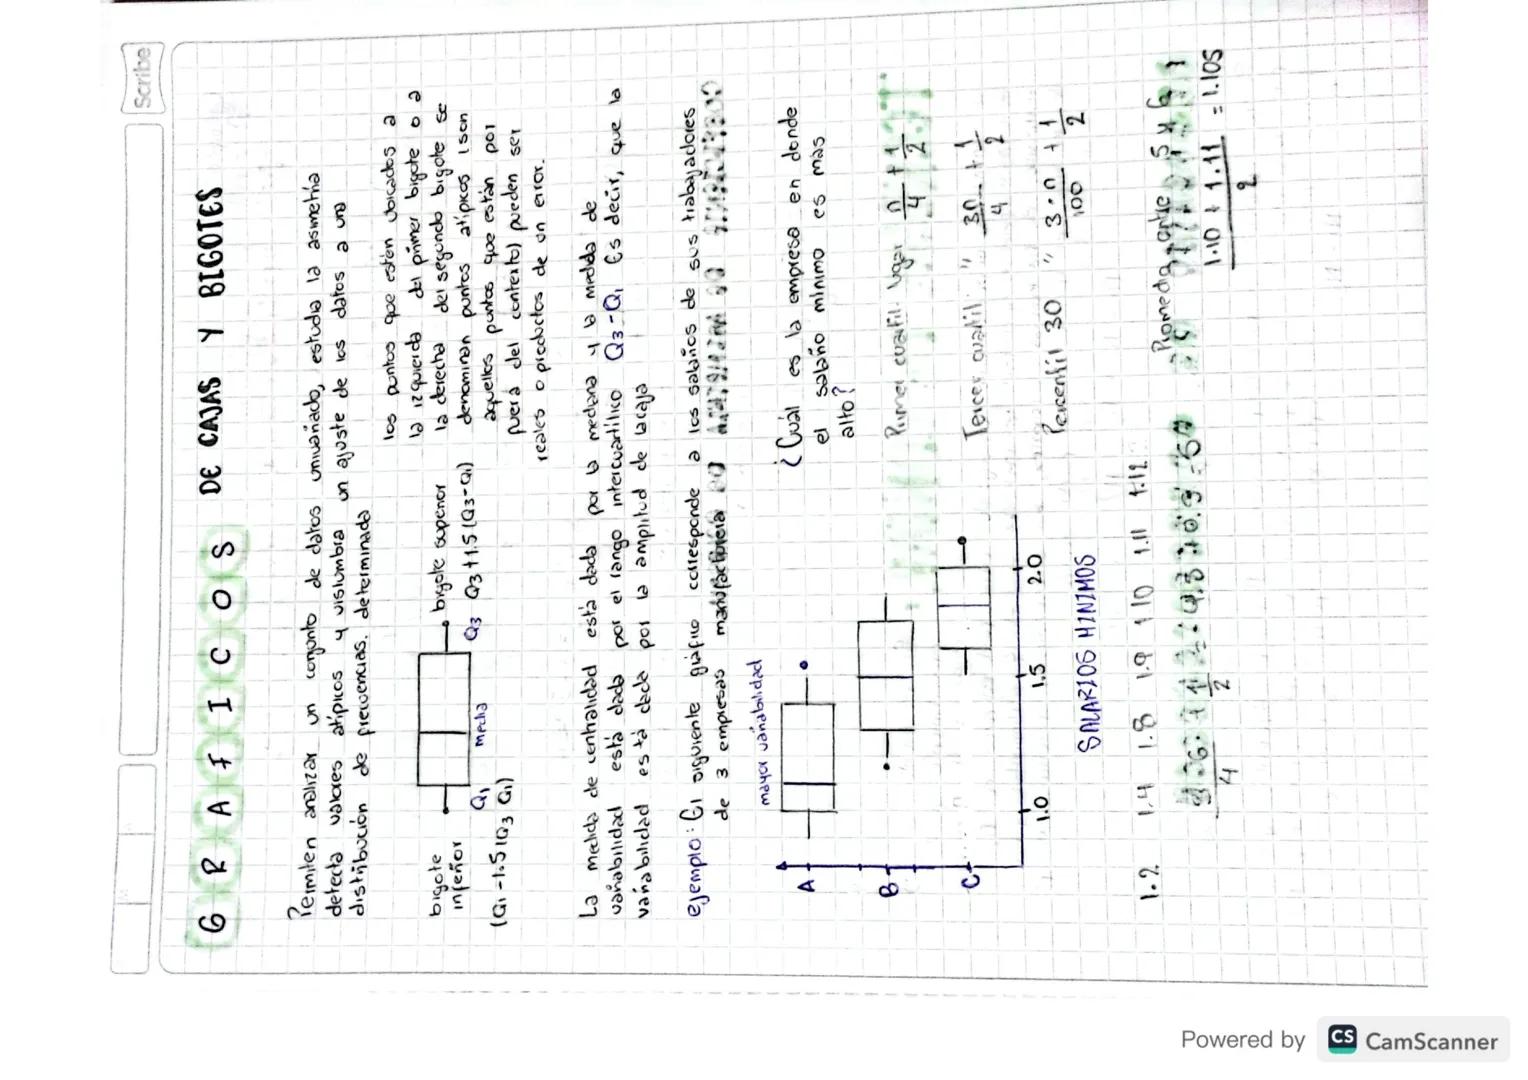 Scribe
GRAFICOS DE CAJAS Y BIGOTES
Permiten analizar un conjunto de datos univariado, estudia la asimetria
detecta valores atipicos y vislumbra un ajuste de los datos a una
distribución de frecuencias. determinada
bigote
inferior
(Q1-1.5(Q3 Q1)
Q1
media
Q3
bigote superior
Q3+1.5(Q3-Q1)
los puntos que estén ubicados a
la izquierda del primer bigote o a
la derecha del segundo bigote se
denominan puntos atipicos (son
aquellos puntos que están por
fuera del contexto) pueden ser
reales o productos de un error.
La medida de centralidad está dada por la mediana y la medida de
variabilidad está dada por el rango intercuartilico Q3-Q1 Es decir, que la
variabilidad está dada por la amplitud de la caja
ejemplo: El siguiente gráfico corresponde a los salarios de sus trabajadores
de 3 empresas manufacturera
mayor variabilidad
A
B
C
1.0 1.5 2.0
SALARIOS MINIMOS
¿Cuál es la empresa en donde
el salario minimo es más
alto?
Primer cuartil lugar n/4 + 1/2
Tercer cuartil " 3n/4 + 1/2
Percentil 30 " 3·n/100 + 1/2
1.2 1.4 1.8 1.9 1.10 1.11 1.12
Promedia entre 5 y 6
1.10 + 1.11 / 2 = 1.105
Powered by CS CamScanner